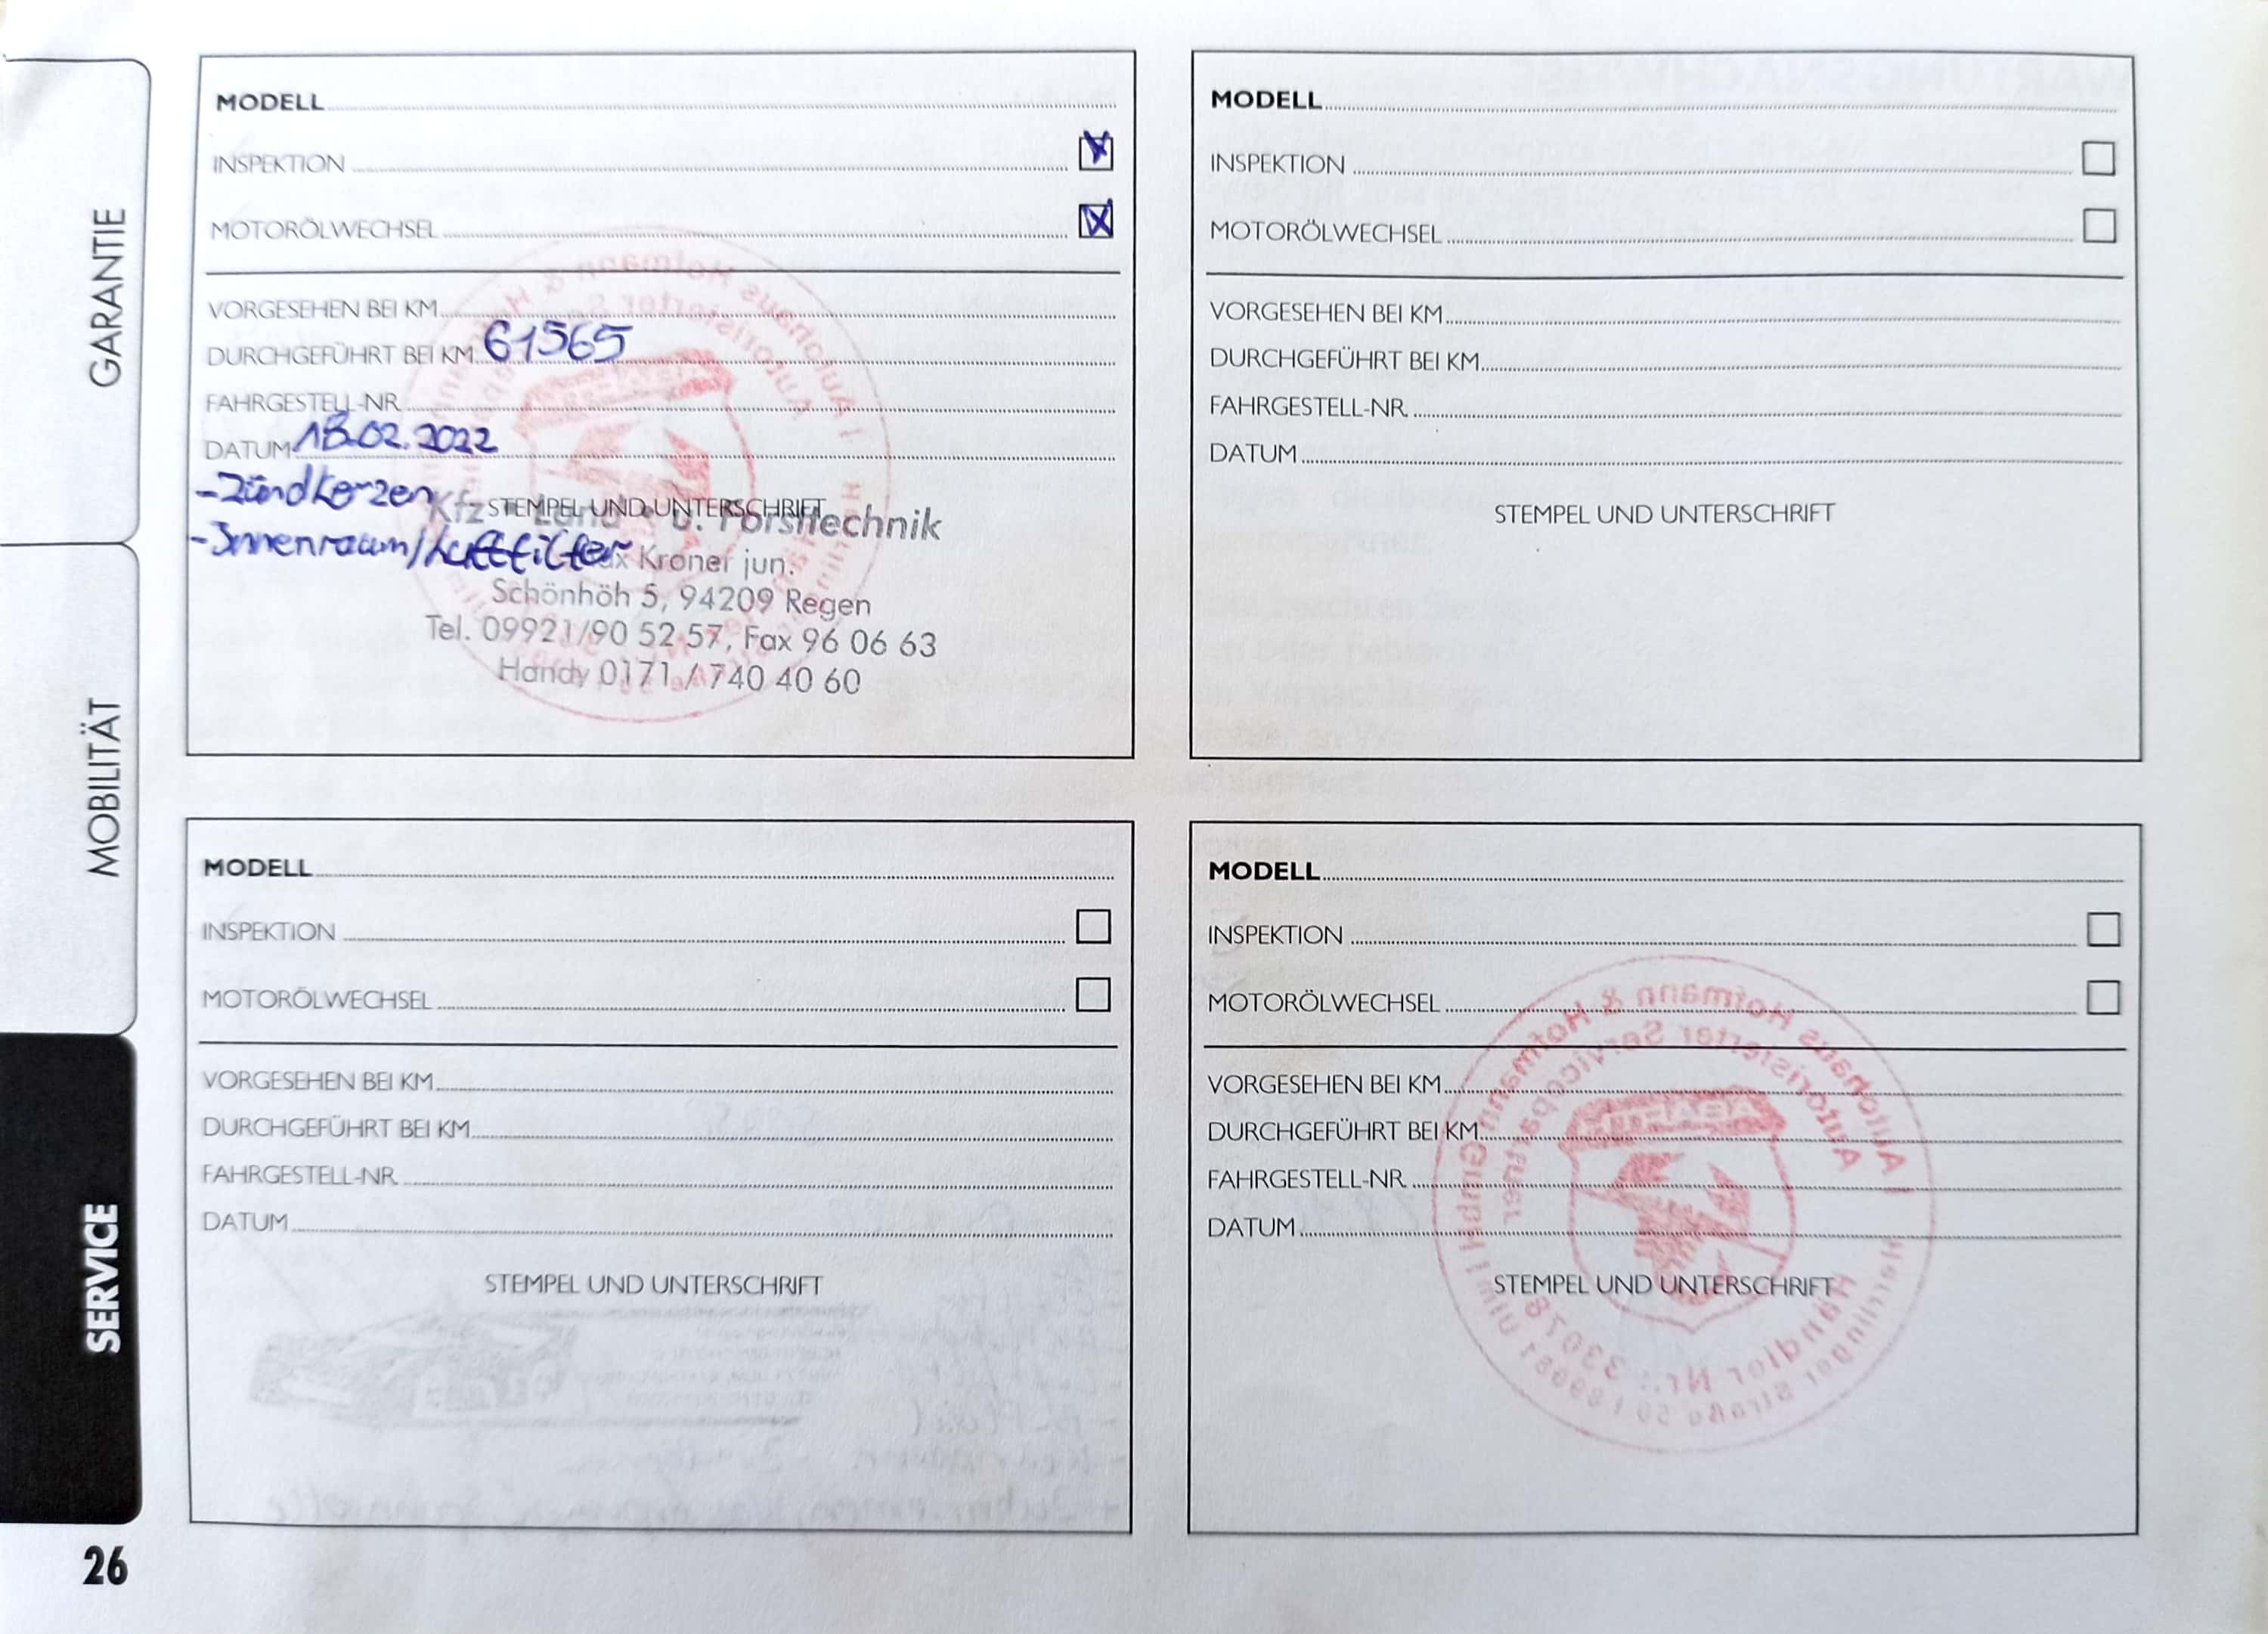 GARANTIE
MOBILITÄT
SERVICE
26
MODELL
INSPEKTION
MOTORÖLWECHSEL
VORGESEHEN BEI KM
DURCHGEFÜHRT BEI KM 61565
FAHRGESTELL-NR.
DATUM 18.02.2022
-Zündkerzen
STEMPEL UND UNTERSCHRIFT
-Innenraum/Luftfilter
Kfz - Land - u. Forsttechnik
Kroner jun.
Schönhöh 5, 94209 Regen
Tel. 09921/90 52 57, Fax 96 06 63
Handy 0171 / 740 40 60
MODELL
INSPEKTION
MOTORÖLWECHSEL
VORGESEHEN BEI KM
DURCHGEFÜHRT BEI KM
FAHRGESTELL-NR.
DATUM
STEMPEL UND UNTERSCHRIFT
MODELL
INSPEKTION
MOTORÖLWECHSEL
VORGESEHEN BEI KM
DURCHGEFÜHRT BEI KM
FAHRGESTELL-NR.
DATUM
STEMPEL UND UNTERSCHRIFT
MODELL
INSPEKTION
MOTORÖLWECHSEL
VORGESEHEN BEI KM
DURCHGEFÜHRT BEI KM
FAHRGESTELL-NR.
DATUM
STEMPEL UND UNTERSCHRIFT